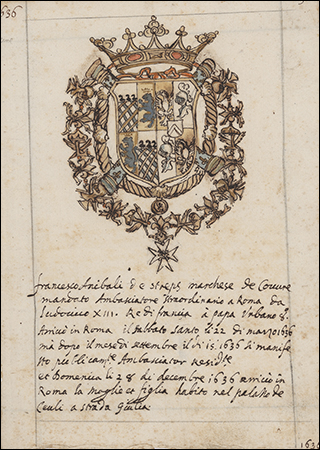 1636
francesco Anibali de streps marchese de Couure
mandato Ambasciatore straordinario a Roma da
Ludovico XIII. Re di francia à papa Urbano 8.
Arrivò in Roma il sabbato santo li 22 di marzo 1636
mà dopo il mese di settembre il dì 15 1636 si manife
stò più
Ambasciator Resid.te
et Domenica li 28 di decembre 1636 arrivò in
Roma la moglie et figlia habitò nel palazzo de
Ceuli a strada Giulia
1636